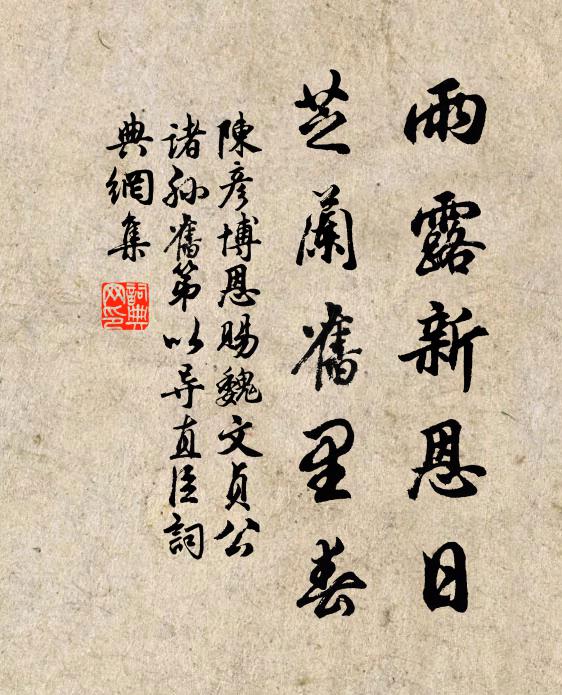 雨露新恩日
芝蘭舊里春
陳彥博恩賜魏文貞公
諸孫舊第以导直臣詞
典網集
詞典網印